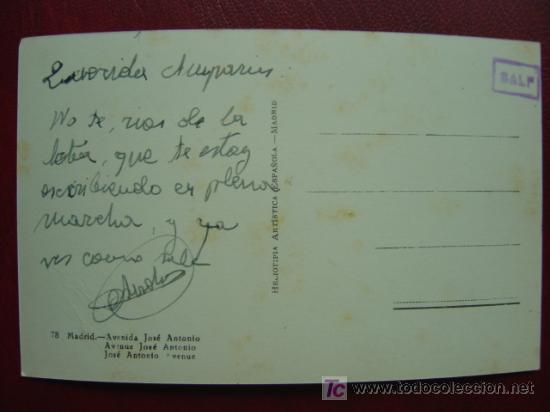 Querida Amparin
No te rias de la
letra, que te estoy
escribiendo en plena
marcha, y ya
ves como sale
78 Madrid.—Avenida José Antonio
Avenue José Antonio
José Antonio venue
HELIOTIPIA ARTÍSTICA ESPAÑOLA.—MADRID
SALF
todocoleccion
todocoleccion.net